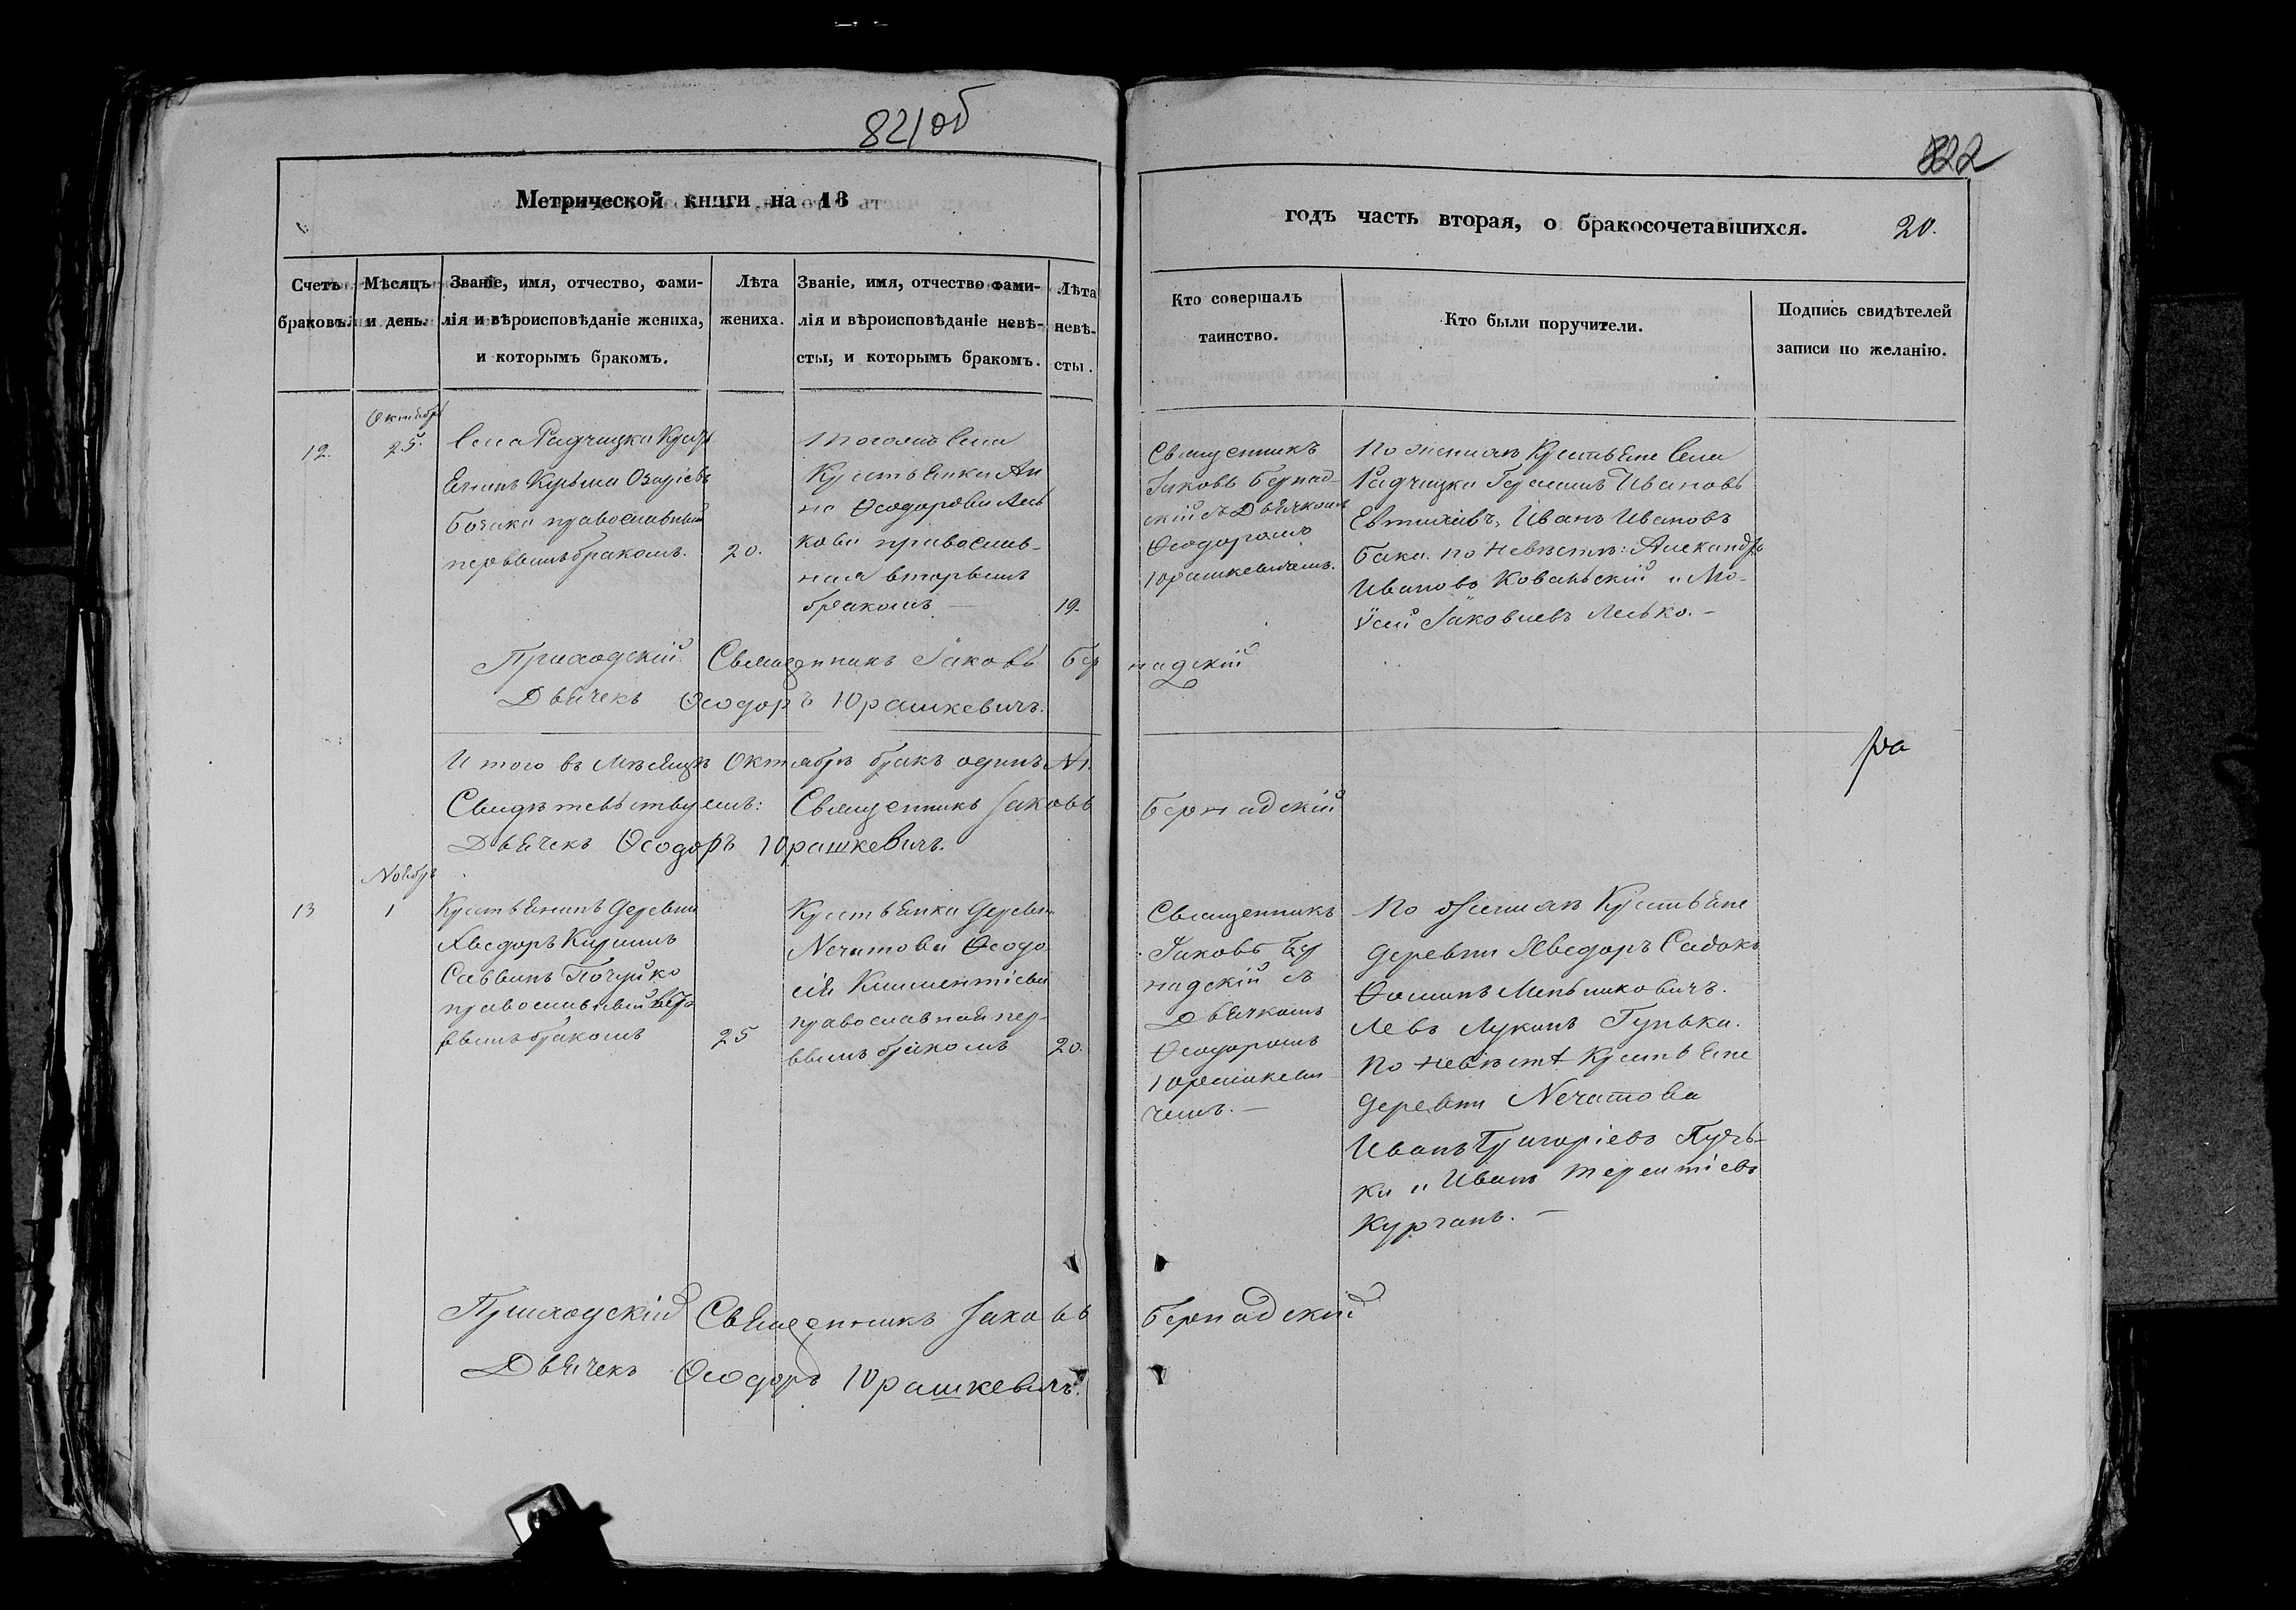 821об
822
Метрической книги на 18
годъ часть вторая, о бракосочетавшихся.
20.
Счетъ браковъ.
Мѣсяцъ и день.
Званіе, имя, отчество, фами-
лія и вѣроисповѣданіе жениха,
и которымъ бракомъ.
Лѣта
жениха.
Званіе, имя, отчество фами-
лія и вѣроисповѣданіе невѣ-
сты, и которымъ бракомъ.
Лѣта
невѣ-
сты.
Кто совершалъ
таинство.
Кто были поручители.
Подпись свидѣтелей
записи по желанію.
12.
Октября
25.
Села Радчицка Кресть
янинъ Курьма Озаріевъ
православный
первымъ бракомъ.
20.
тогоже села
Крестьянка Ан
на Ѳеодорова Лесь
кова православ-
ная вторымъ
бракомъ —
19.
Священникъ
Іаковъ Бернад-
скій съ Дьячкомъ
Ѳеодоромъ
Юрашкевичемъ.
По женихѣ Крестьяне села
Радчицка Герасимъ Ивановъ
Евтихіевъ, Иванъ Ивановъ
Бака. по Невѣстѣ: Александръ
Ивановъ Ковальскій и Мо-
ѵсей Іаковлевъ Лесько. —
Приходскій Священникъ Іаковъ Бернадскій
Дьячекъ Ѳеодоръ Юрашкевичъ.
Итого въ Мѣсяцѣ Октябрѣ бракъ одинъ №1.
Свидѣтельствуемъ: Священникъ Іаковъ Бернадскій
Дьячекъ Ѳеодоръ Юрашкевичъ.
13
Ноябрь
1
Крестьянинъ деревни
Хведоръ Кирилъ
Саввинъ
православный пер
вымъ бракомъ
25
Крестьянка деревни
Нечатова Ѳеодо
сія Климентіева
православная пер-
вымъ бракомъ
20.
Священникъ
Іаковъ Бер
надскій съ
Дьячкомъ
Ѳеодоромъ
Юрашкеви
чемъ. —
По женихѣ Крестьяне
деревни Хведоръ Садокъ
Ѳоминъ Меньшиковичъ.
Левъ Лукинъ Гунька.
По Невѣстѣ Крестьяне
деревни Нечатова
Иванъ Григоріевъ Пучь-
ка и Иванъ Терентіевъ
Курганъ. —
Приходскій Священникъ Іаковъ Бернадскій
Дьячекъ Ѳеодоръ Юрашкевичъ.